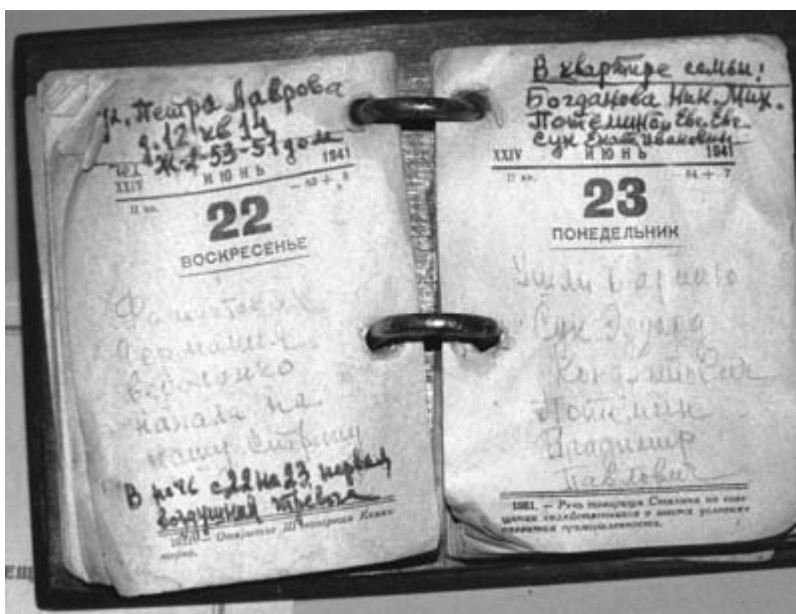 ул. Петра Лаврова
д. 12 кв 14
Ж-2-53-51 дом
1941
ИЮНЬ
XXIV
II кв.
22
ВОСКРЕСЕНЬЕ
Фашистская
германия
вероломно
напала на
нашу страну
В ночь с 22 на 23 первая
воздушная тревога
Открытие
В квартире семьи:
Богданова Ник. Мих.
Потёмина, Евг. Евг.
Сук Екат. Иванович
XXIV ИЮНЬ 1941
II кв. 84 + 7
23
ПОНЕДЕЛЬНИК
Ушли в армию
Сук Эдуард
Потёмин
Владимир
Павлович
1931. — Речь товарища Сталина на сове-
щании хозяйственников о новых условиях
развития промышленности.